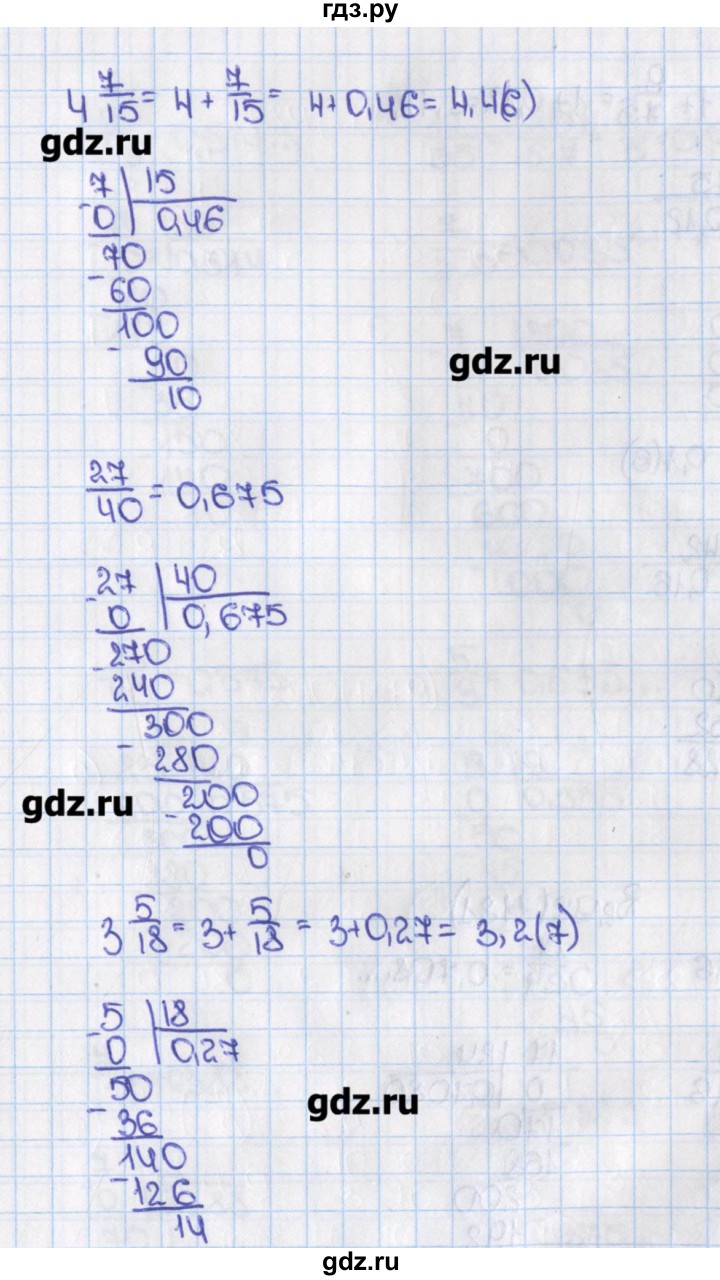 гдз.ру
4 7/15 = 4 + 7/15 = 4+0,46 = 4,4(6)
gdz.ru
7 | 15
- 0 | 0,46
70
- 60
100
- 90
10
gdz.ru
27/40 = 0,675
27 | 40
- 0 | 0,675
270
- 240
300
- 280
200
- 200
0
gdz.ru
3 5/18 = 3+ 5/18 = 3+0,27 = 3,2(7)
5 | 18
- 0 | 0,27
50
- 36
140
- 126
14
gdz.ru
gdz.ru